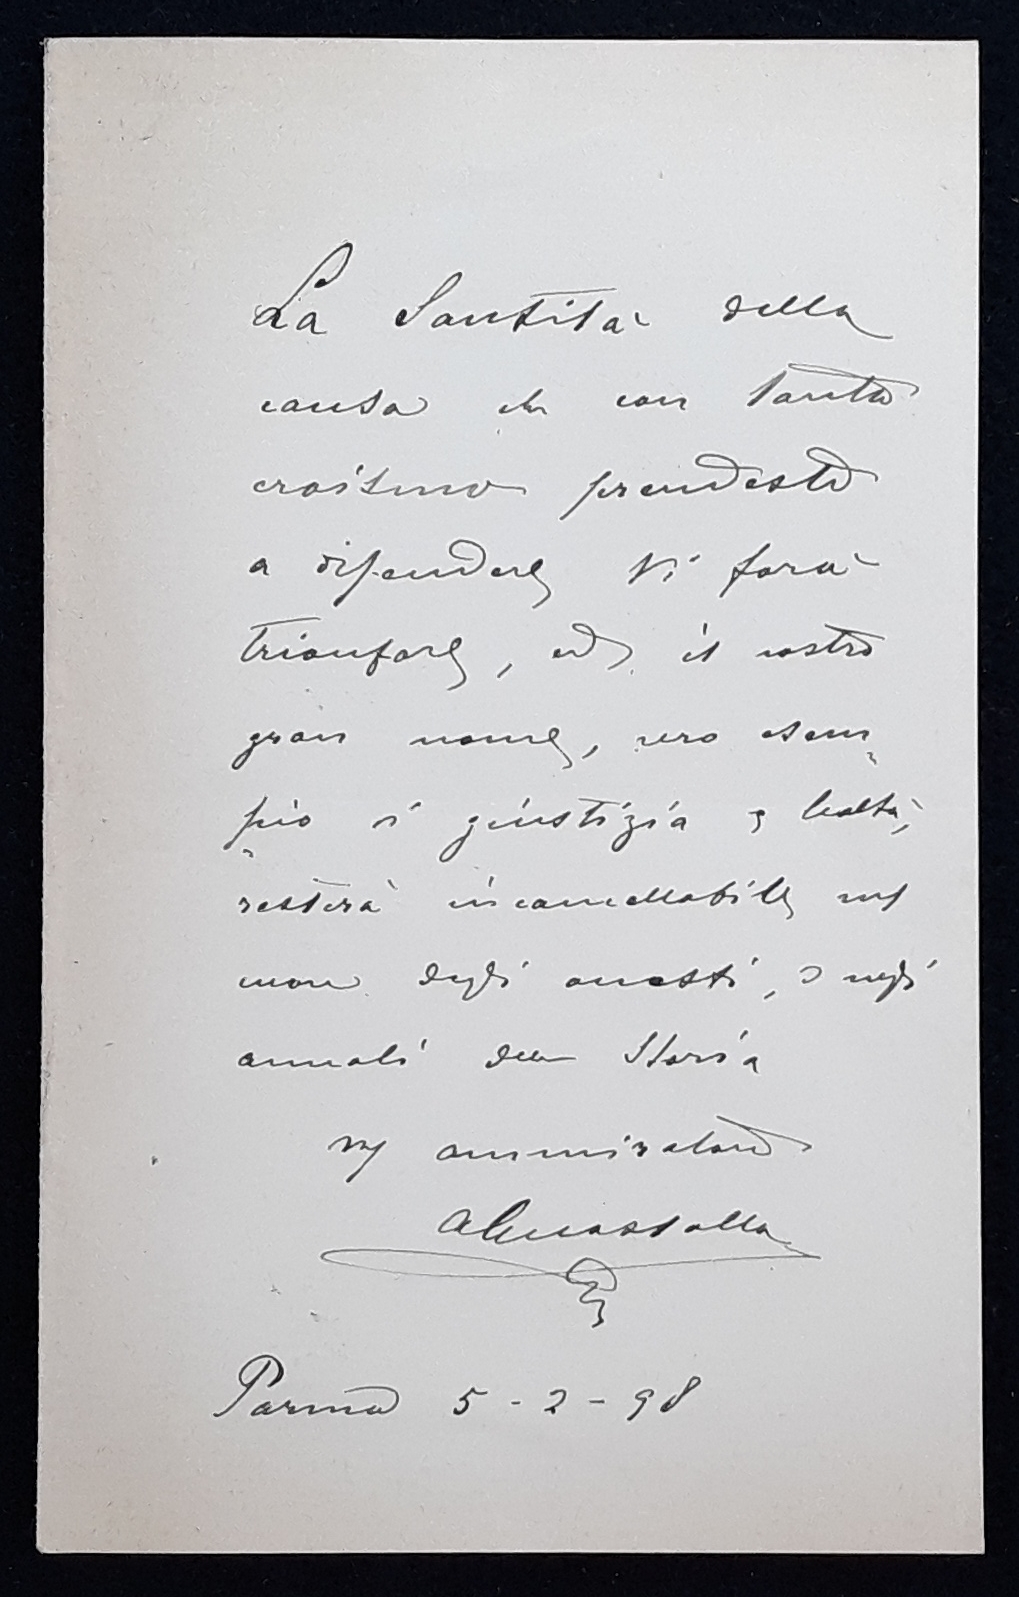 La Santità della
causa che con tanto
eroismo prendeste
a difendere Vi farà
trionfare, ed il vostro
gran nome, vero esem
pio di giustizia e lealtà,
resterà incancellabile nel
cuore degli onesti, e negli
annali della Storia
ammiratore
AGuastalla
Parma 5-2-98